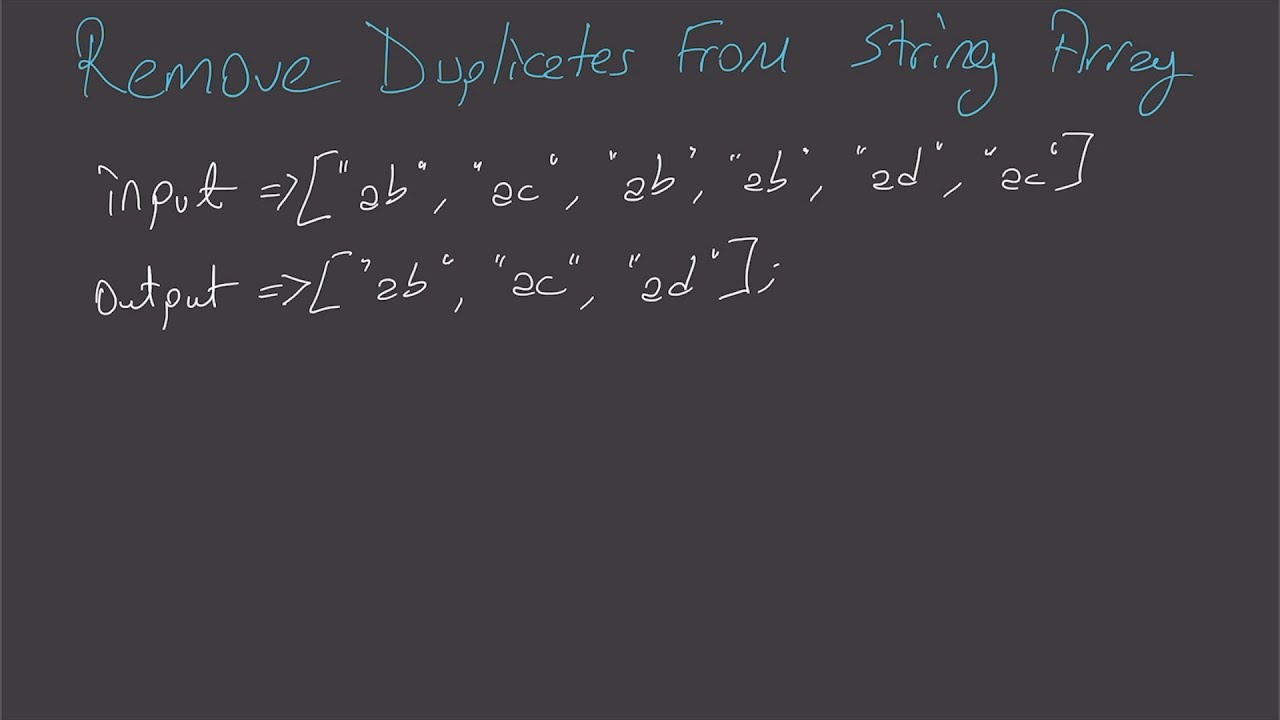 Remove Duplicates From String Array
input =>["ab", "ac", "ab", "ab", "ad", "ac"]
output =>["ab", "ac", "ad"];